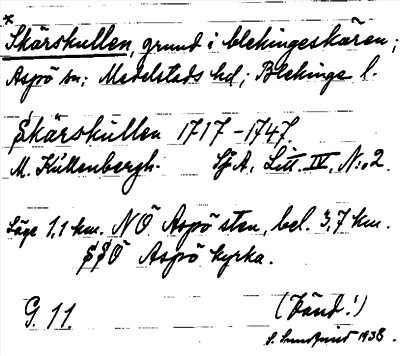 *
Skärskullen, grund i blekingeskären;
Aspö sn; Medelstads hd; Blekinge l.
Skärskullen 1717-1747.
M. Kullenbergh. SjA, Litt. IV, N:o 2.
Läge 1,1 km. NÖ Aspö sten, bel. 3,7 km.
SSÖ Aspö kyrka.
G. 11. (Känd!)
1938.